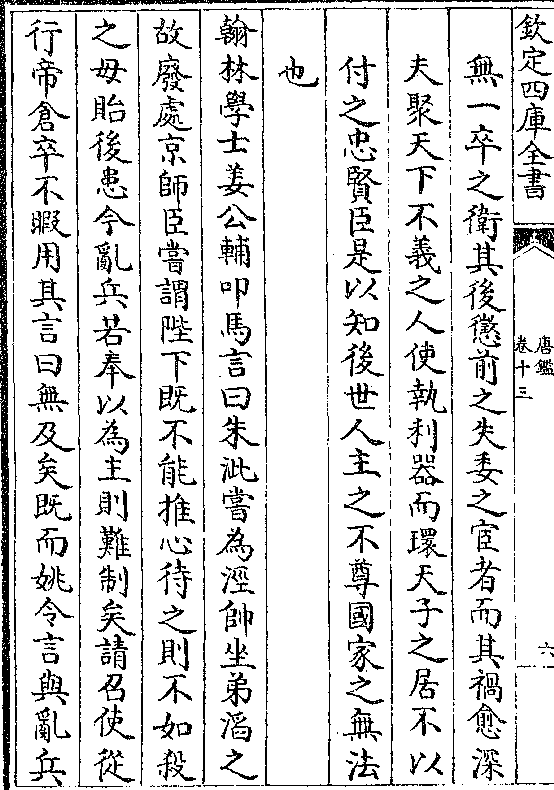 欽定四庫全書
唐鑑
卷十三
六
無一卒之衛其後懲前之失委之宦者而其禍愈深
夫聚天下不義之人使執利器而環天子之居不以
付之忠賢臣是以知後世人主之不尊國家之無法
也
翰林學士姜公輔叩馬言曰朱泚嘗為涇帥坐弟滔之
故廢處京師臣嘗謂陛下既不能推心待之則不如殺
之毋貽後患今亂兵若奉以為主則難制矣請召使從
行帝倉卒不暇用其言曰無及矣既而姚令言與亂兵